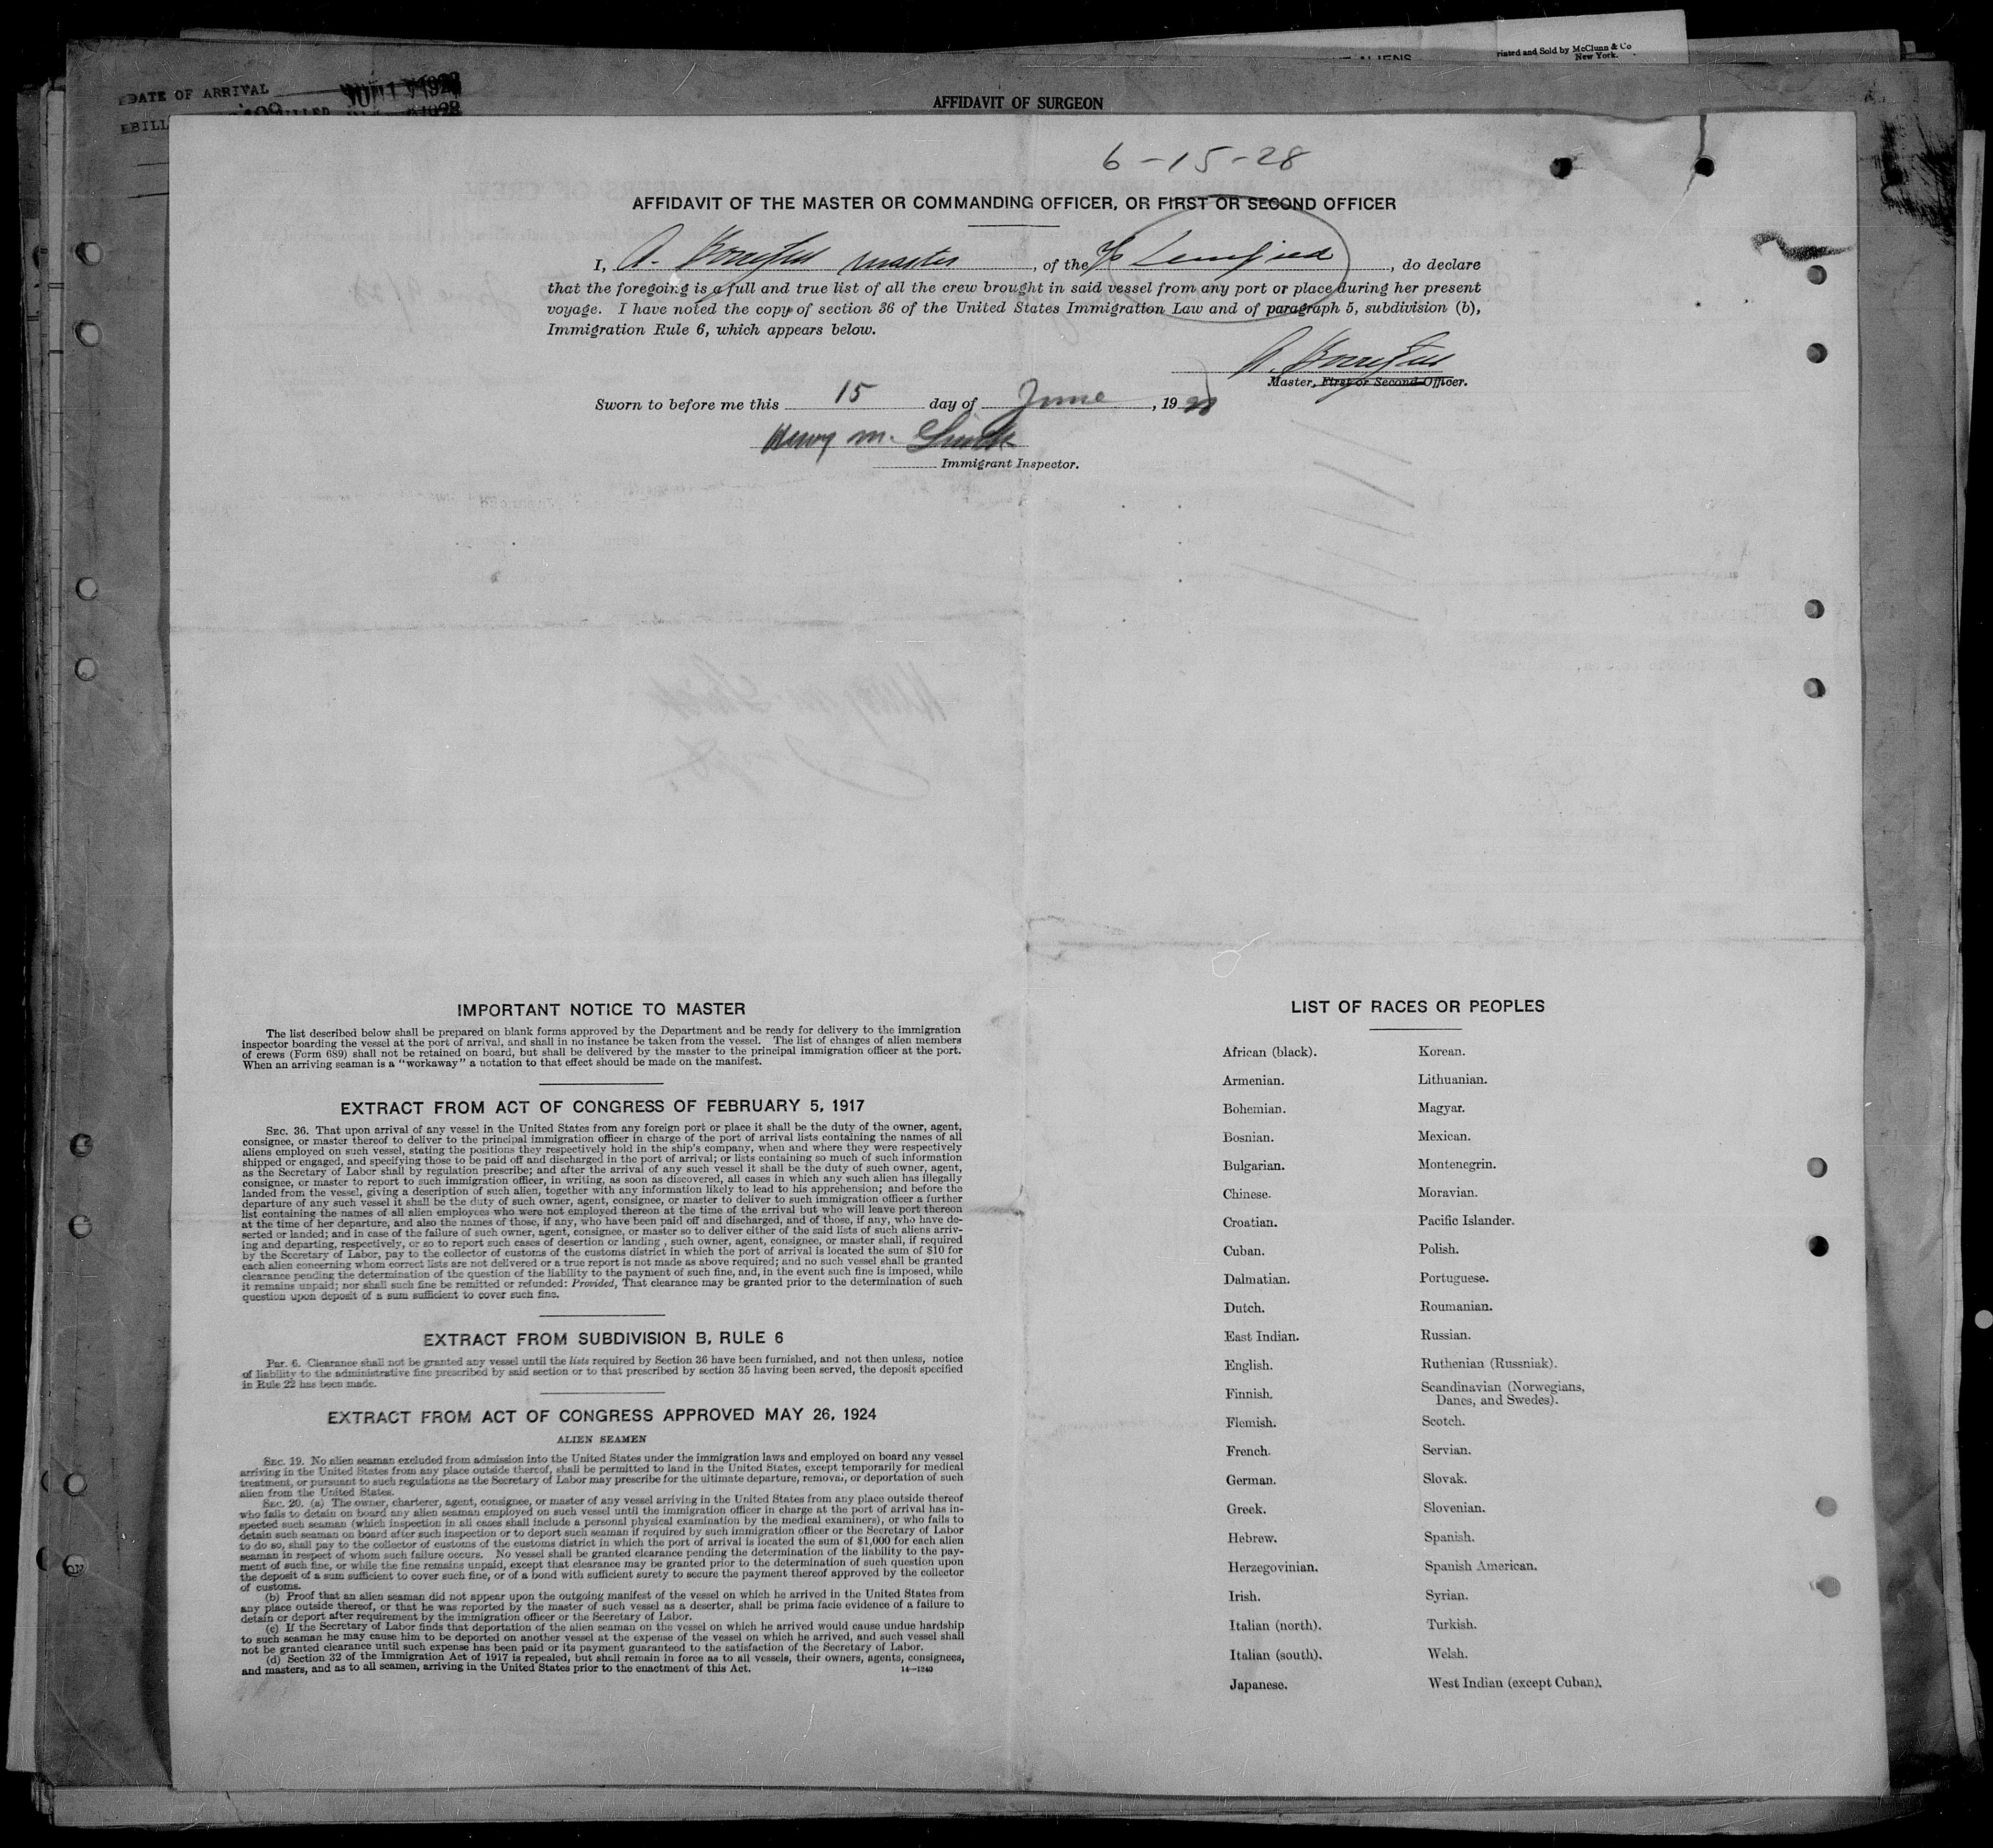 rinted and Sold by McClunn & Co
New York.
DATE OF ARRIVAL
AFFIDAVIT OF SURGEON
6-15-28
AFFIDAVIT OF THE MASTER OR COMMANDING OFFICER, OR FIRST OR SECOND OFFICER
I, A. master, of the , do declare
that the foregoing is a full and true list of all the crew brought in said vessel from any port or place during her present
voyage. I have noted the copy of section 36 of the United States Immigration Law and of paragraph 5, subdivision (b),
Immigration Rule 6, which appears below.
Master, First or Second Officer.
Sworn to before me this 15 day of June, 19
Henry M.
Immigrant Inspector.
IMPORTANT NOTICE TO MASTER
The list described below shall be prepared on blank forms approved by the Department and be ready for delivery to the immigration
inspector boarding the vessel at the port of arrival, and shall in no instance be taken from the vessel. The list of changes of alien members
of crews (Form 689) shall not be retained on board, but shall be delivered by the master to the principal immigration officer at the port.
When an arriving seaman is a "workaway" a notation to that effect should be made on the manifest.
EXTRACT FROM ACT OF CONGRESS OF FEBRUARY 5, 1917
SEC. 36. That upon arrival of any vessel in the United States from any foreign port or place it shall be the duty of the owner, agent,
consignee, or master thereof to deliver to the principal immigration officer in charge of the port of arrival lists containing the names of all
aliens employed on such vessel, stating the positions they respectively hold in the ship's company, when and where they were respectively
shipped or engaged, and specifying those to be paid off and discharged in the port of arrival; or lists containing so much of such information
as the Secretary of Labor shall by regulation prescribe; and after the arrival of any such vessel it shall be the duty of such owner, agent,
consignee, or master to report to such immigration officer, in writing, as soon as discovered, all cases in which any such alien has illegally
landed from the vessel, giving a description of such alien, together with any information likely to lead to his apprehension; and before the
departure of any such vessel it shall be the duty of such owner, agent, consignee, or master to deliver to such immigration officer a further
list containing the names of all alien employees who were not employed thereon at the time of the arrival but who will leave port thereon
at the time of her departure, and also the names of those, if any, who have been paid off and discharged, and of those, if any, who have de-
serted or landed; and in case of the failure of such owner, agent, consignee, or master so to deliver either of the said lists of such aliens arriv-
ing and departing, respectively, or so to report such cases of desertion or landing , such owner, agent, consignee, or master shall, if required
by the Secretary of Labor, pay to the collector of customs of the customs district in which the port of arrival is located the sum of $10 for
each alien concerning whom correct lists are not delivered or a true report is not made as above required; and no such vessel shall be granted
clearance pending the determination of the question of the liability to the payment of such fine, and, in the event such fine is imposed, while
it remains unpaid; nor shall such fine be remitted or refunded: Provided, That clearance may be granted prior to the determination of such
question upon deposit of a sum sufficient to cover such fine.
EXTRACT FROM SUBDIVISION B, RULE 6
Par. 6. Clearance shall not be granted any vessel until the lists required by Section 36 have been furnished, and not then unless, notice
of liability to the administrative fine prescribed by said section or to that prescribed by section 35 having been served, the deposit specified
in Rule 22 has been made.
EXTRACT FROM ACT OF CONGRESS APPROVED MAY 26, 1924
ALIEN SEAMEN
SEC. 19. No alien seaman excluded from admission into the United States under the immigration laws and employed on board any vessel
arriving in the United States from any place outside thereof, shall be permitted to land in the United States, except temporarily for medical
treatment, or pursuant to such regulations as the Secretary of Labor may prescribe for the ultimate departure, removal, or deportation of such
alien from the United States.
SEC. 20. (a) The owner, charterer, agent, consignee, or master of any vessel arriving in the United States from any place outside thereof
who fails to detain on board any alien seaman employed on such vessel until the immigration officer in charge at the port of arrival has in-
spected such seaman (which inspection in all cases shall include a personal physical examination by the medical examiners), or who fails to
detain such seaman on board after such inspection or to deport such seaman if required by such immigration officer or the Secretary of Labor
to do so, shall pay to the collector of customs of the customs district in which the port of arrival is located the sum of $1,000 for each alien
seaman in respect of whom such failure occurs. No vessel shall be granted clearance pending the determination of the liability to the pay-
ment of such fine, or while the fine remains unpaid, except that clearance may be granted prior to the determination of such question upon
the deposit of a sum sufficient to cover such fine, or of a bond with sufficient surety to secure the payment thereof approved by the collector
of customs.
(b) Proof that an alien seaman did not appear upon the outgoing manifest of the vessel on which he arrived in the United States from
any place outside thereof, or that he was reported by the master of such vessel as a deserter, shall be prima facie evidence of a failure to
detain or deport after requirement by the immigration officer or the Secretary of Labor.
(c) If the Secretary of Labor finds that deportation of the alien seaman on the vessel on which he arrived would cause undue hardship
to such seaman he may cause him to be deported on another vessel at the expense of the vessel on which he arrived, and such vessel shall
not be granted clearance until such expense has been paid or its payment guaranteed to the satisfaction of the Secretary of Labor.
(d) Section 32 of the Immigration Act of 1917 is repealed, but shall remain in force as to all vessels, their owners, agents, consignees,
and masters, and as to all seamen, arriving in the United States prior to the enactment of this Act.
14—1240
LIST OF RACES OR PEOPLES
African (black).
Armenian.
Bohemian.
Bosnian.
Bulgarian.
Chinese.
Croatian.
Cuban.
Dalmatian.
Dutch.
East Indian.
English.
Finnish.
Flemish.
French.
German.
Greek.
Hebrew.
Herzegovinian.
Irish.
Italian (north).
Italian (south).
Japanese.
Korean.
Lithuanian.
Magyar.
Mexican.
Montenegrin.
Moravian.
Pacific Islander.
Polish.
Portuguese.
Roumanian.
Russian.
Ruthenian (Russniak).
Scandinavian (Norwegians,
Danes, and Swedes).
Scotch.
Servian.
Slovak.
Slovenian.
Spanish.
Spanish American.
Syrian.
Turkish.
Welsh.
West Indian (except Cuban).